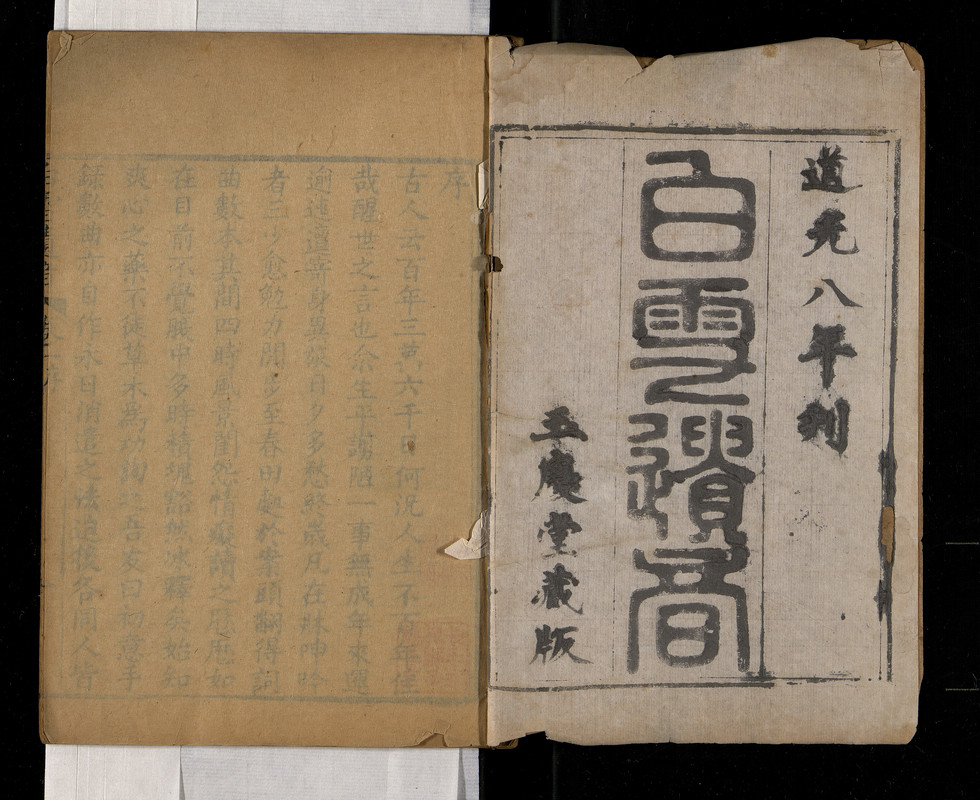 道光八年刻
白雪遺音
玉慶堂藏版
序
古人云百年三萬六千日何況人生不百年佳
哉醒世之言也余生平謭陋一事無成年來運
邅寄身異鄉日夕多愁終歲凡在牀呻吟
者三少愈勉力閒步至春田處於案頭翻得詞
曲數本其間四時風景閨怨情癡讀之歷歷如
在目前不覺腹中多時積塊豁然冰釋矣始知
爽心之藥不徒草木為功詢之吾友曰初意手
錄數曲亦自作永日消遣之法迨後各同人皆